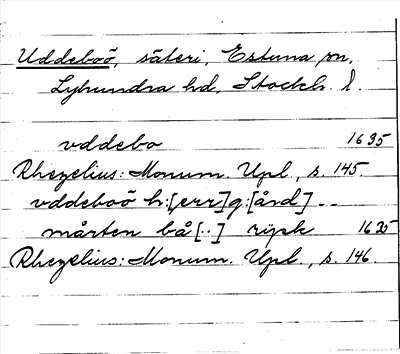 Uddeboö, säteri, Estuna sn,
Lyhundra hd, Stockh. l.
vddebo 1635
Rhezelius: Monum. Upl., s. 145.
vddeboö h:[err]g:[ård] --
mårten bå[··] rijsk 1635
Rhezelius: Monum. Upl., s. 146.